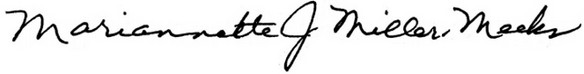 Mariannette J Miller-Meeks